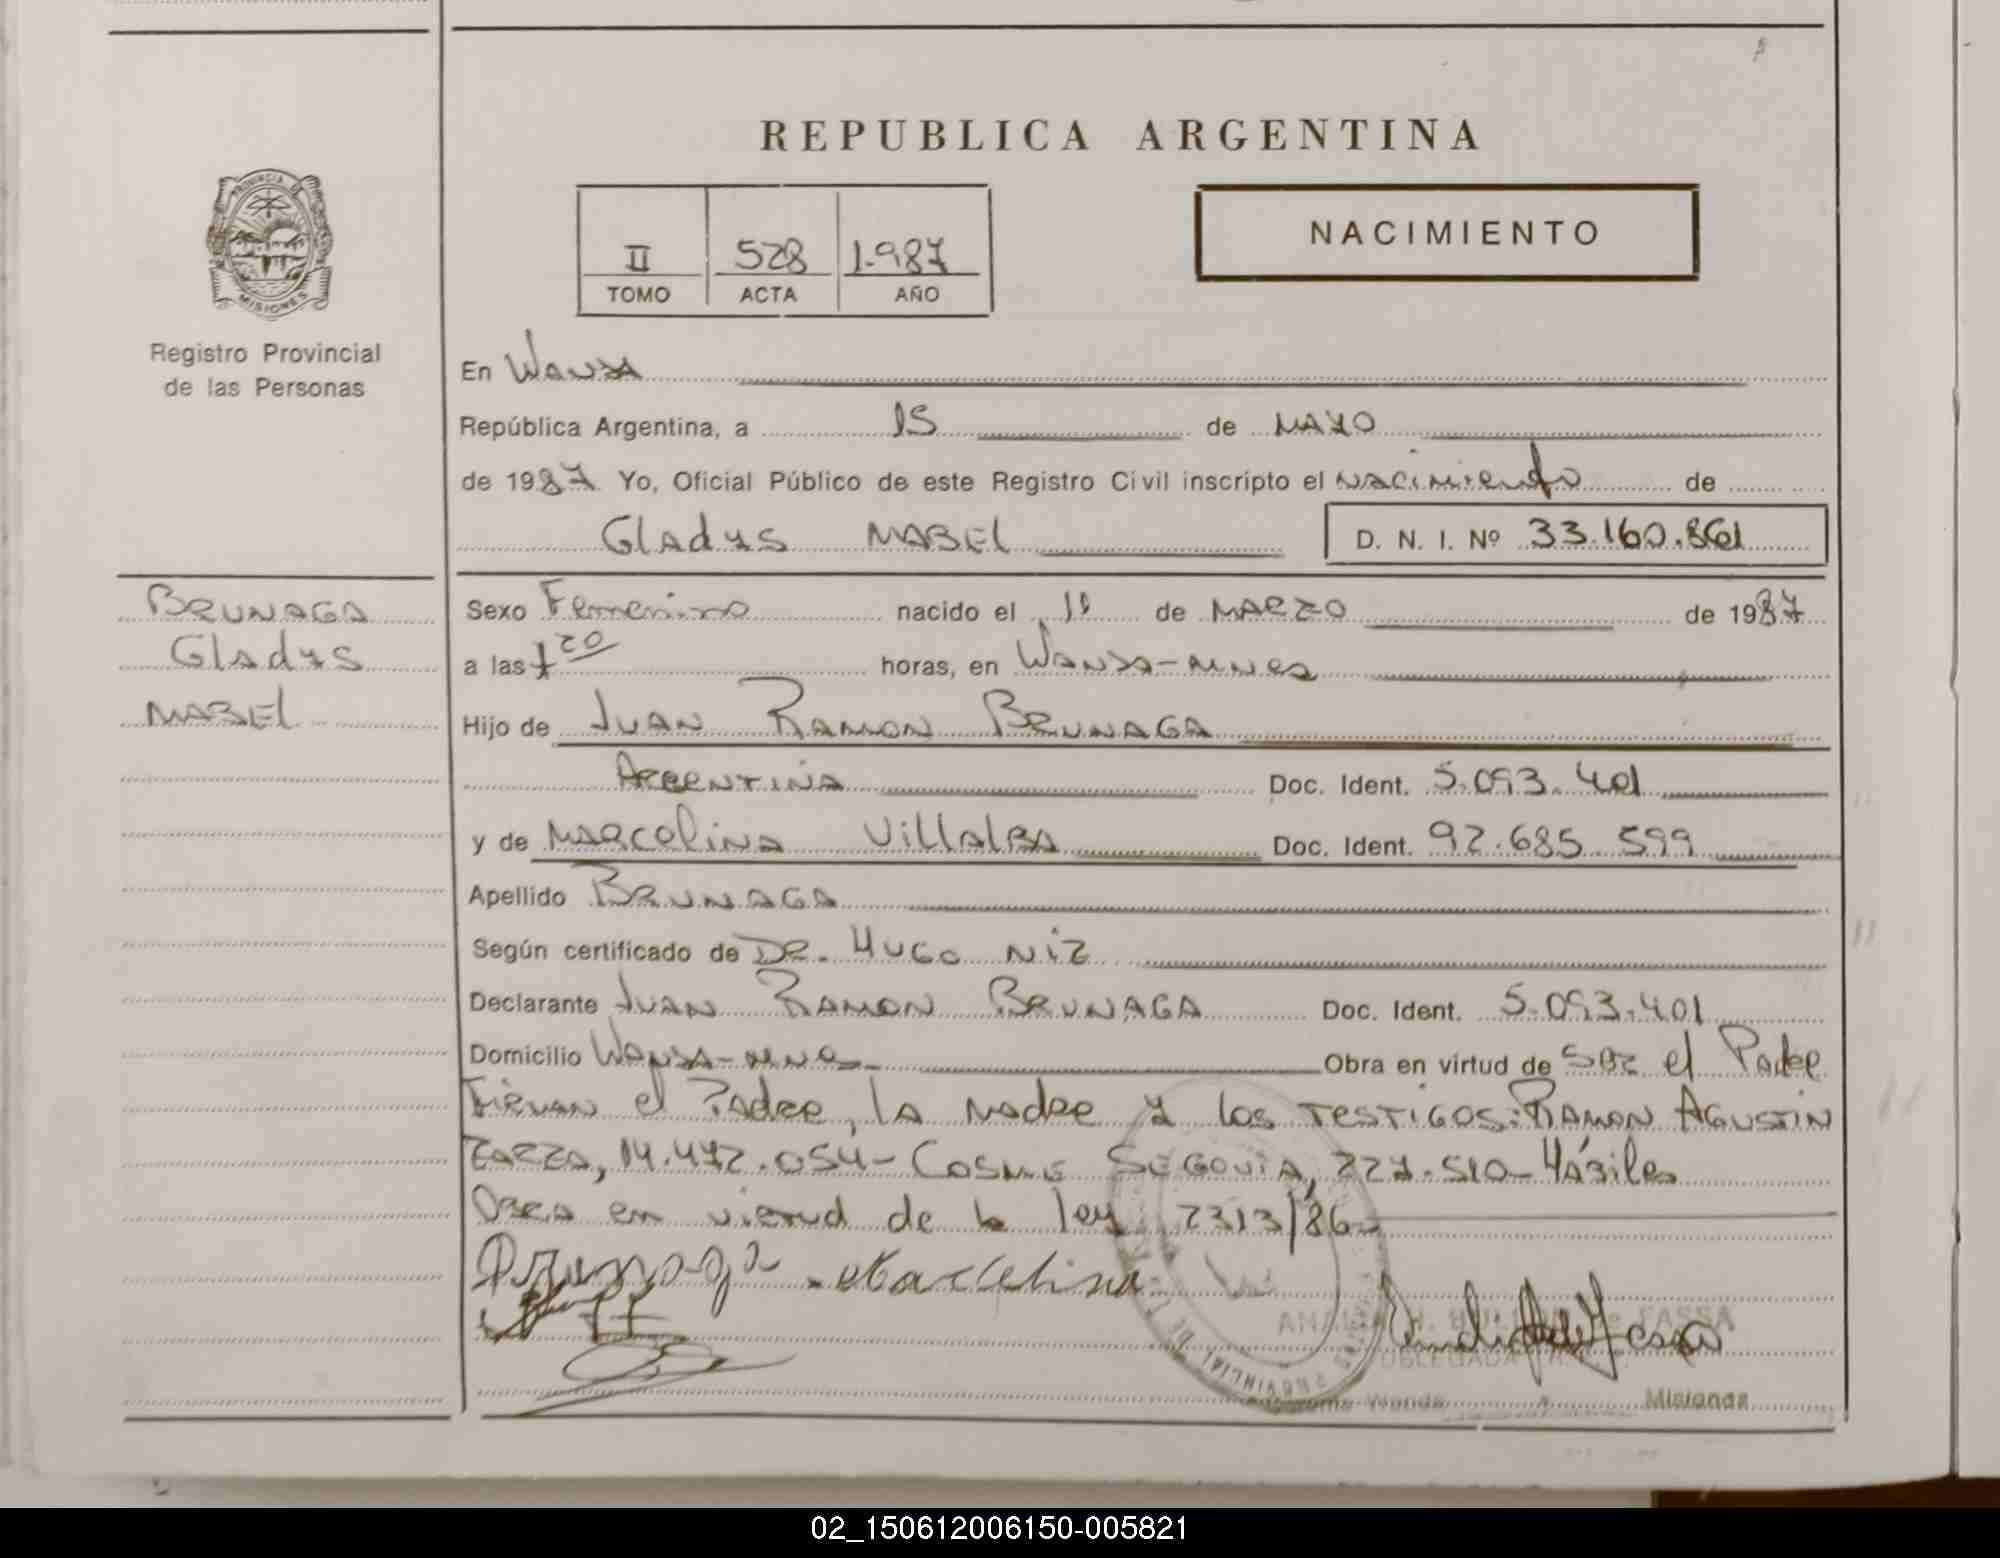 REPUBLICA ARGENTINA
PROVINCIA DE
MISIONES
Registro Provincial
de las Personas
II 528 1.987
TOMO ACTA AÑO
NACIMIENTO
En Wanda
República Argentina, a 15 de MAYO
de 1987 Yo, Oficial Público de este Registro Civil inscripto el nacimiento de
Gladys MABEL D. N. I. Nº 33.160.861
BRUNAGA
Gladys
MABEL
Sexo Femenino nacido el 11 de MARZO de 1987
a las 7 20 horas, en Wanda-Mnes
Hijo de JUAN RAMON BRUNAGA
ARGENTINA Doc. Ident. 5.093.401
y de MARCELINA VillAlBA Doc. Ident. 92.685.599
Apellido BRUNAGA
Según certificado de DR. HUGO NIZ
Declarante JUAN RAMON BRUNAGA Doc. Ident. 5.093.401
Domicilio Wanda-Mnes Obra en virtud de SER el Padre
Firman el Padre, la Madre y los TESTIGOS: RAMON AGUSTIN
14.472.054- COSME SEGOVIA, 227.510- Hábiles
Obra en virtud de la ley 2313/86
Brunaga Marcelina
PROVINCIAL DE
de FASSA
Wanda Misiones
02_150612006150-005821